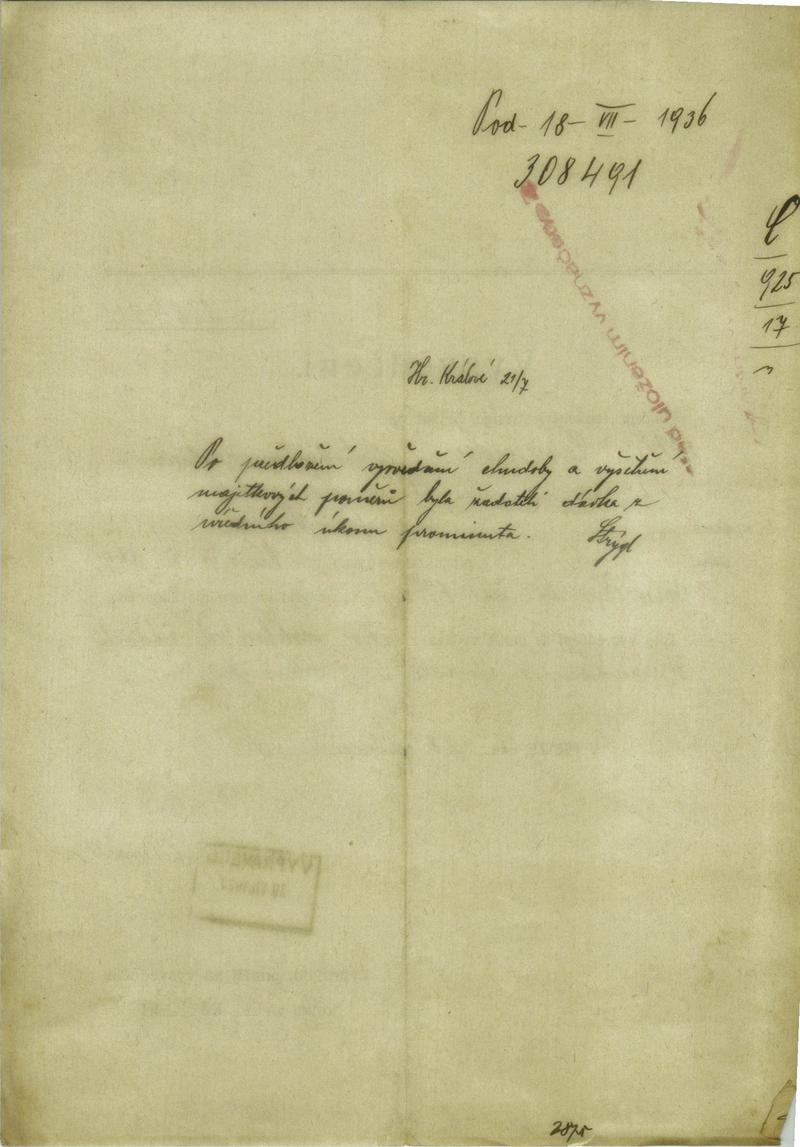 Pod- 18- VII- 1936
308491
C
925
17
před uložením vyznačeno
Hr. Králové 21/7
Po předložení vysvědčení chudoby a vyšetření
majetkových poměrů byla žadateli dávka z
úředního úkonu prominuta.
2875